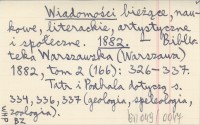 Wiadomości bieżące, nau-
kowe, literackie, artystyczne
i społeczne. 1882. Biblio
teka Warszawska (Warszawa)
1882, tom 2 (166): 326-337.
Tatr i Podhala dotyczą s.
334, 336, 337 (geologia, speleologia,
zoologia).
WHP BZ